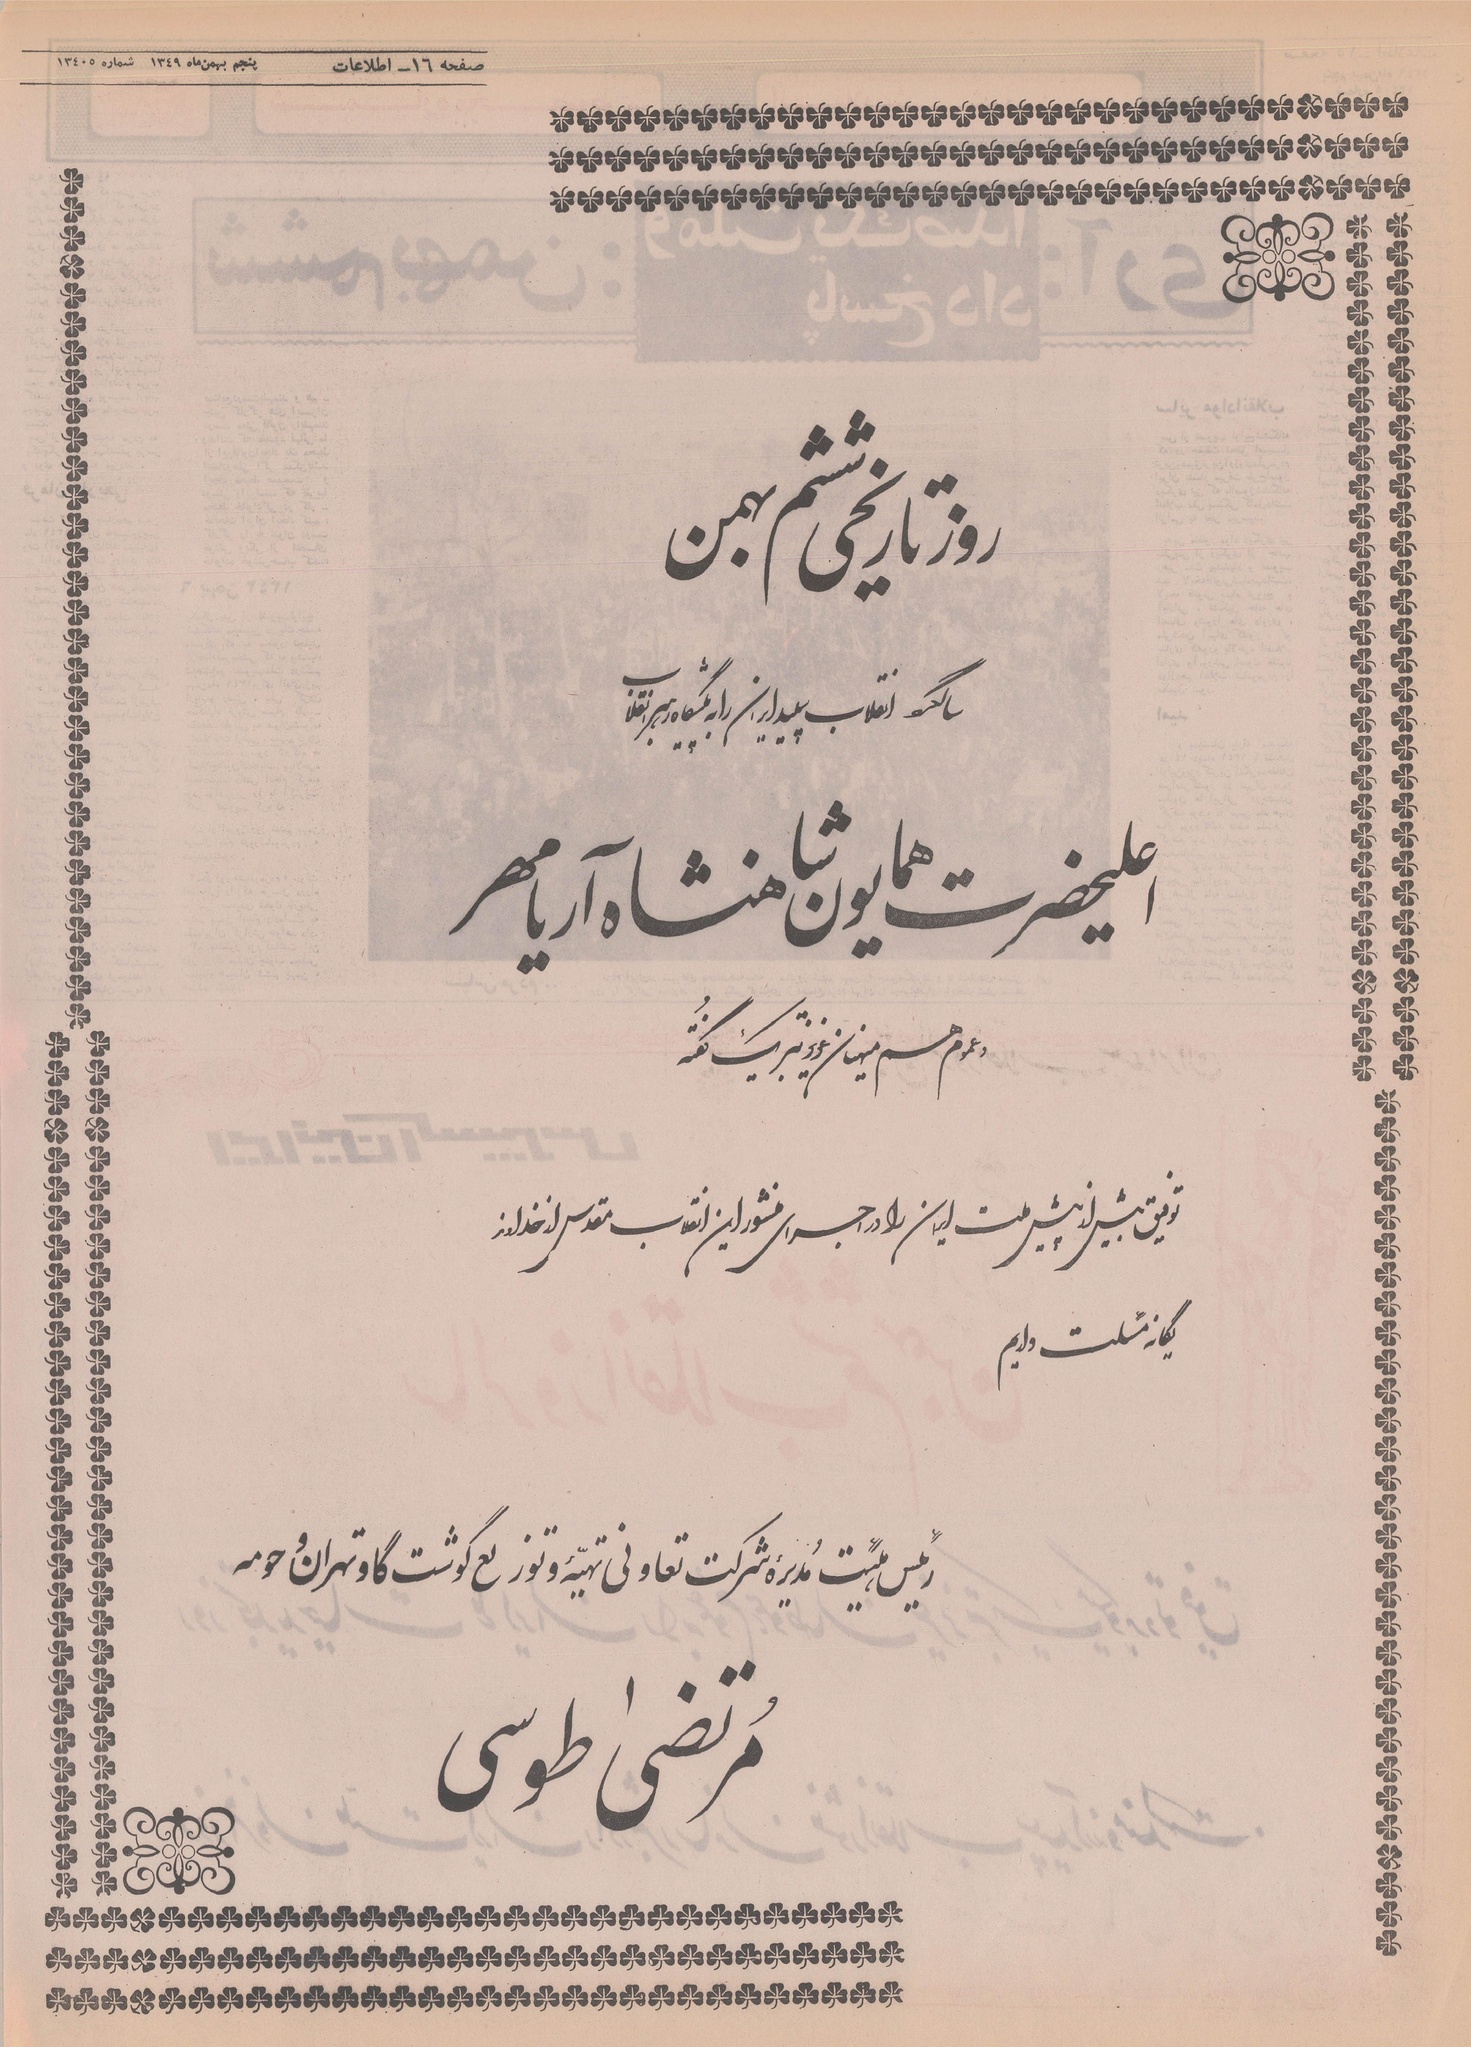 صفحه ١٦ـ اطلاعات پنجم بهمن‌ماه ١٣٤٩ شماره ١٣٤٠٥
روز تاریخی ششم بهمن
سالگرد انقلاب سپید ایران را به پیشگاه رهبر انقلاب
اعلیحضرت همایون شاهنشاه آریامهر
و عموم هم میهنان عزیز تبریک گفته
توفیق بیش از پیش ملت ایران را در اجرای منشور این انقلاب مقدس از خداوند
یگانه مسئلت داریم
رئیس هیئت مُدیرهٔ شرکت تعاونی تهیّهٔ و توزیع گوشت گاو تهران و حومه
مُرتضیٰ طوسی